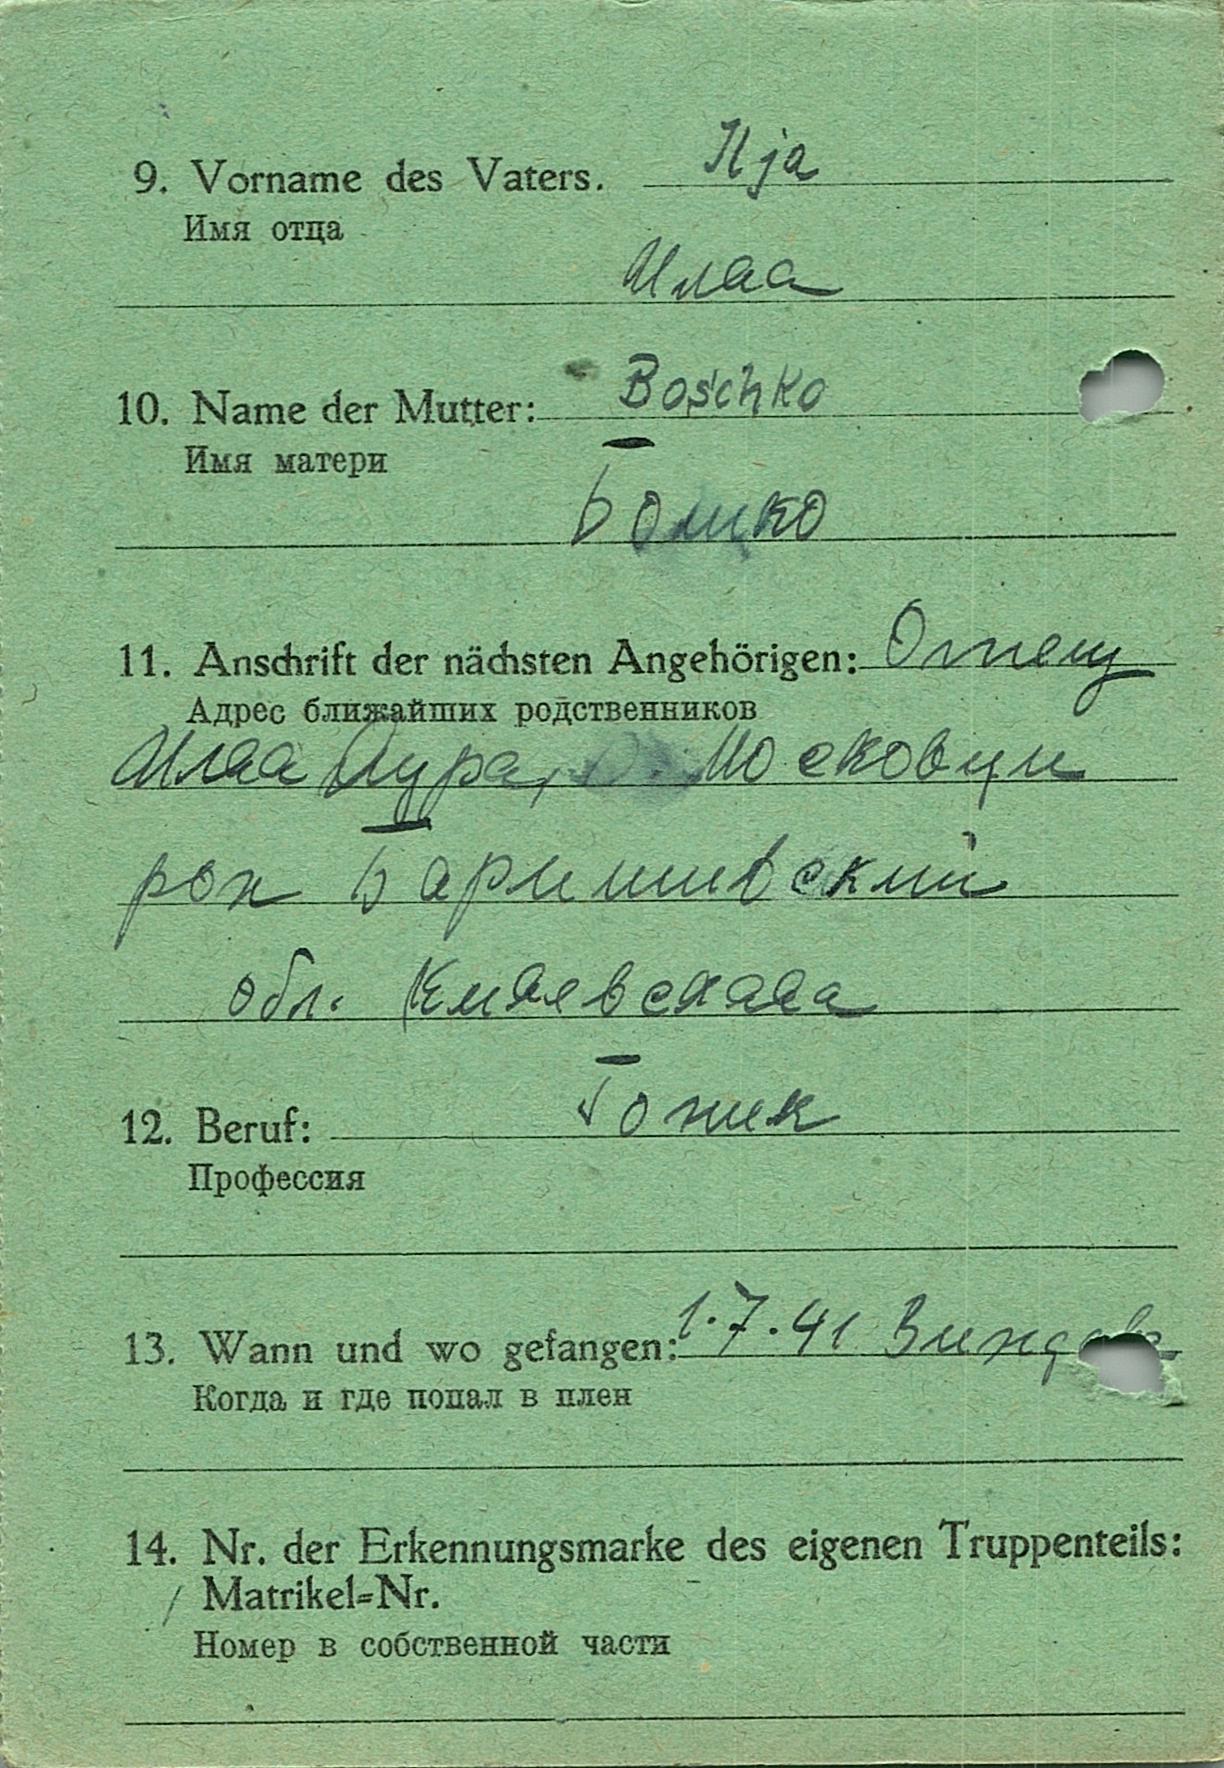 9. Vorname des Vaters. Ilja
Имя отца
Илаа
10. Name der Mutter: Boschko
Имя матери
Бошко
11. Anschrift der nächsten Angehörigen: Отец
Адрес ближайших родственников
Илаа Московци
рон Баришивский
обл. Киевскаа
12. Beruf:
Профессия
13. Wann und wo gefangen: 1.7.41
Когда и где попал в плен
14. Nr. der Erkennungsmarke des eigenen Truppenteils:
Matrikel=Nr.
Номер в собственной части